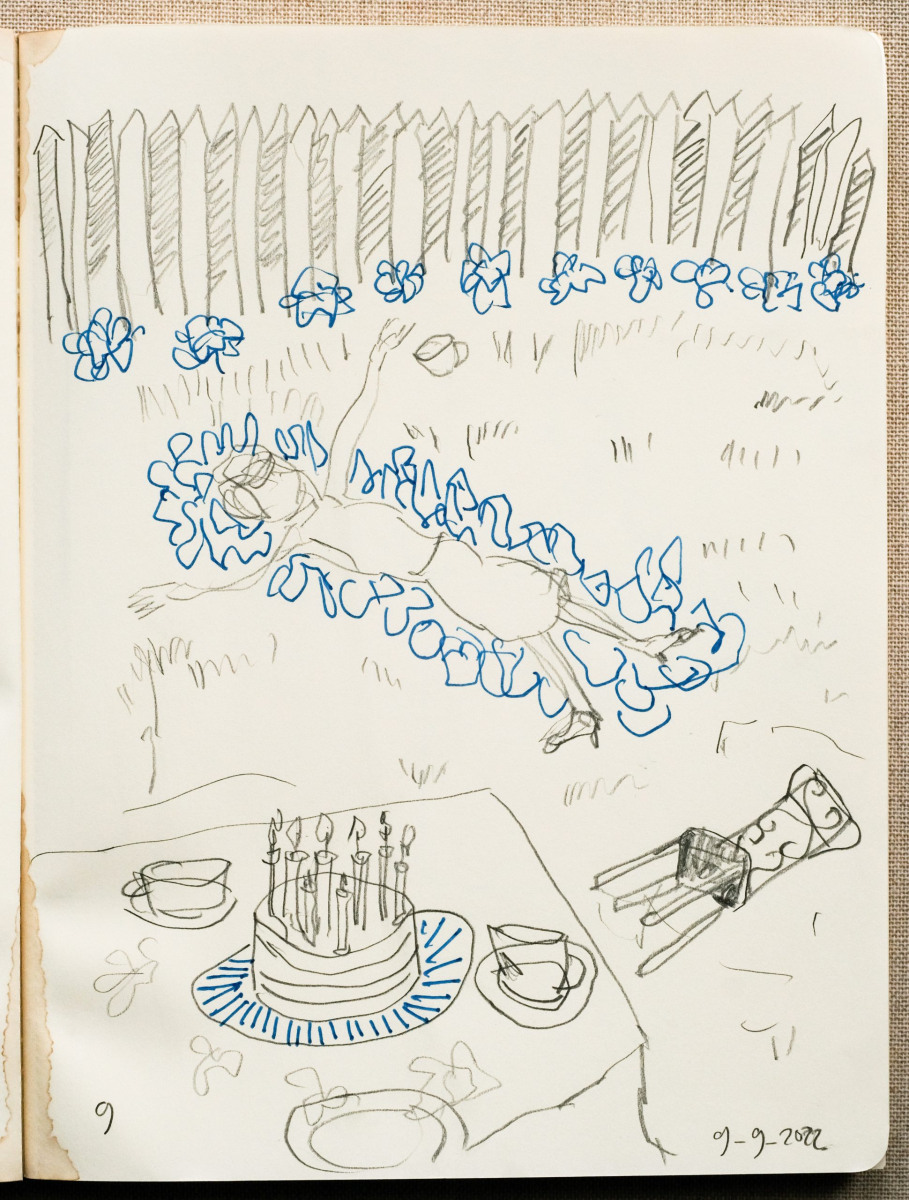 9
9-9-2022